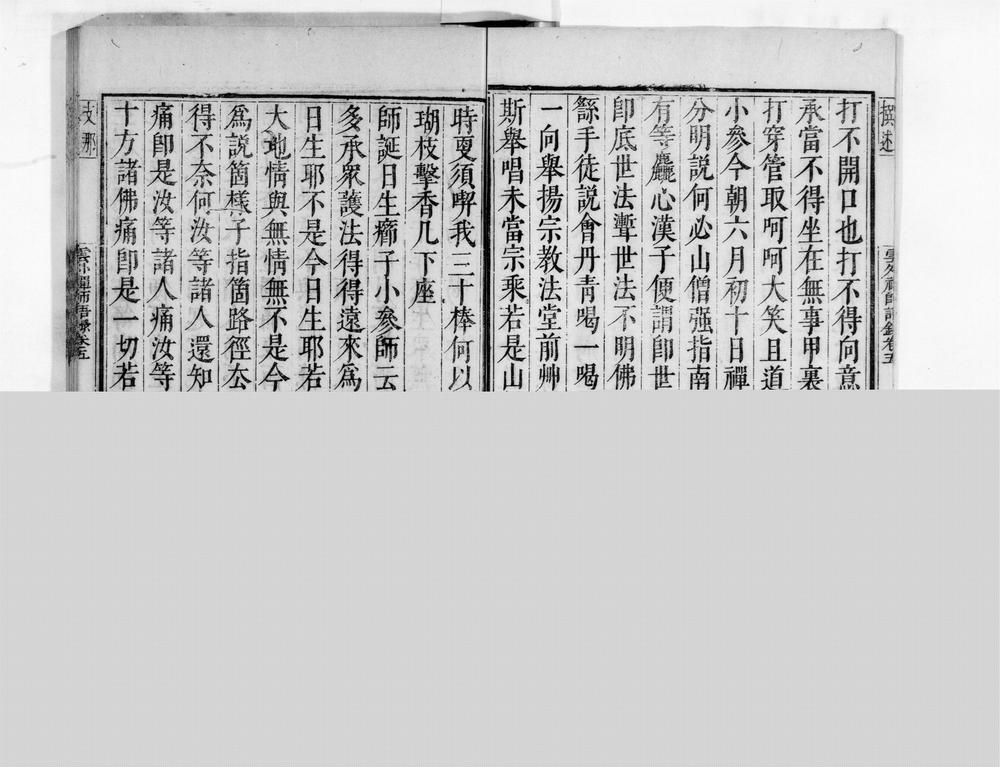 撰述
打不開口也打不得向意
承當不得坐在無事甲裏
打穿管取呵呵大笑且道
小參今朝六月初十日禪
分明說何必山僧强指南
有等麤心漢子便謂卽世
卽底世法蹔世法不明佛
繇手徒說會丹青喝一喝
一向舉揚宗教法堂前艸
斯舉唱未當宗乘若是山
時更須喫我三十棒何以
瑚枝擊香几下座
師誕日生癤子小參師云
多承眾護法得得遠來爲
日生耶不是今日生耶若
大地情與無情無不是今
爲說箇樣子指箇路徑厺
得不奈何汝等諸人還知
痛卽是汝等諸人痛汝等
十方諸佛痛卽是一切若
支那